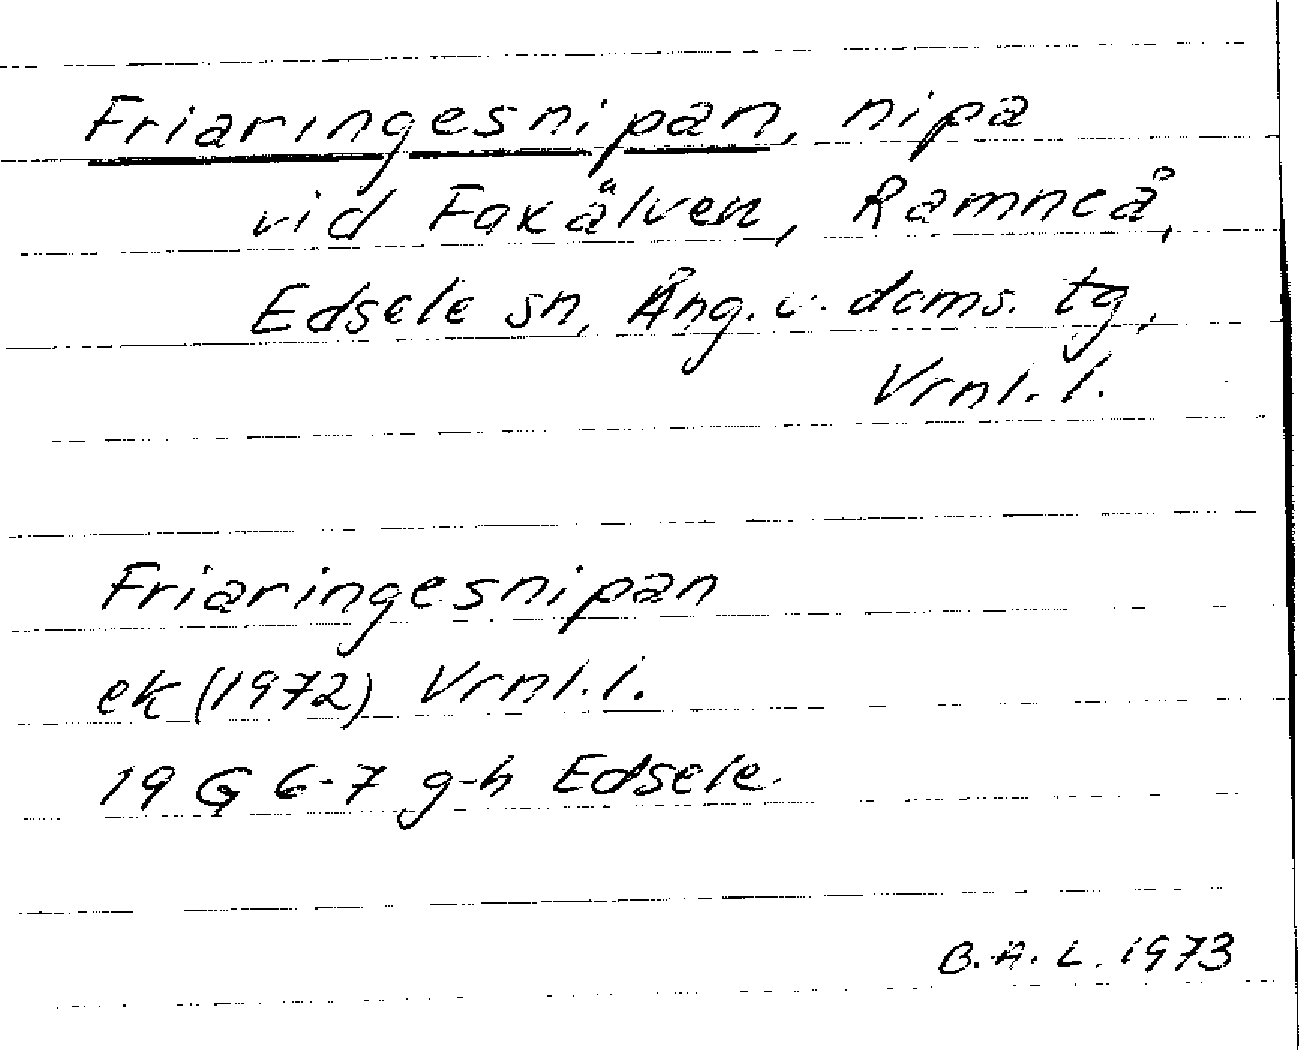 Friaringesnipan, nipa
vid Faxälven, Ramneå,
Edsele sn, Ång. v. doms. tg,
Vrnl. l.
Friaringesnipan
ek (1972) Vrnl. l.
19 G 6-7 g-h Edsele
B.A.L. 1973